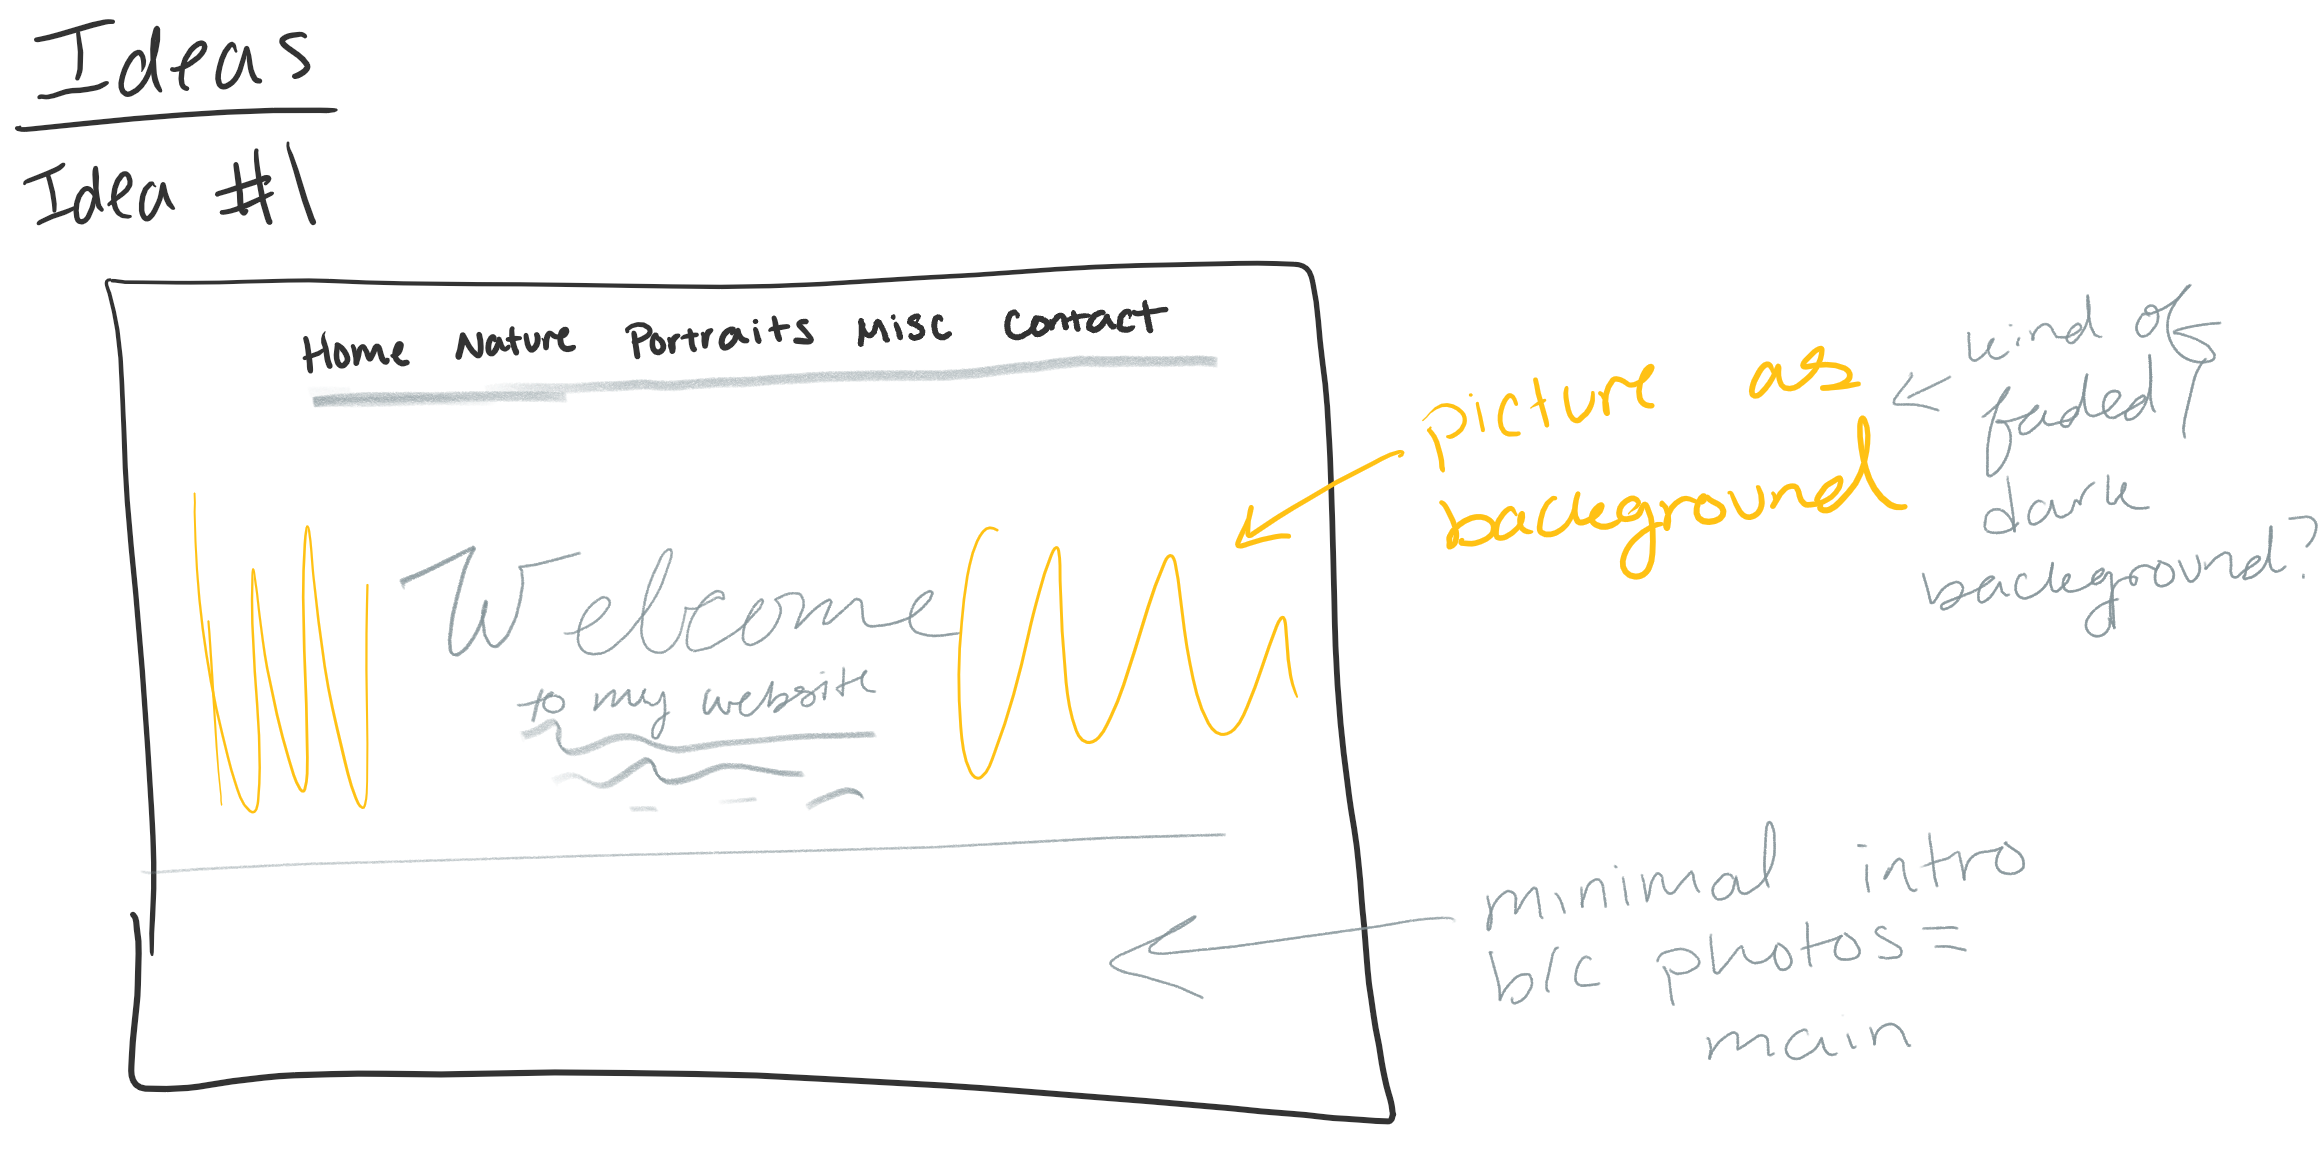 Ideas
Idea #1
Home Nature Portraits Misc Contact
Welcome
to my website
picture as
background
kind of
faded/
dark
background?
minimal intro
b/c photos =
main